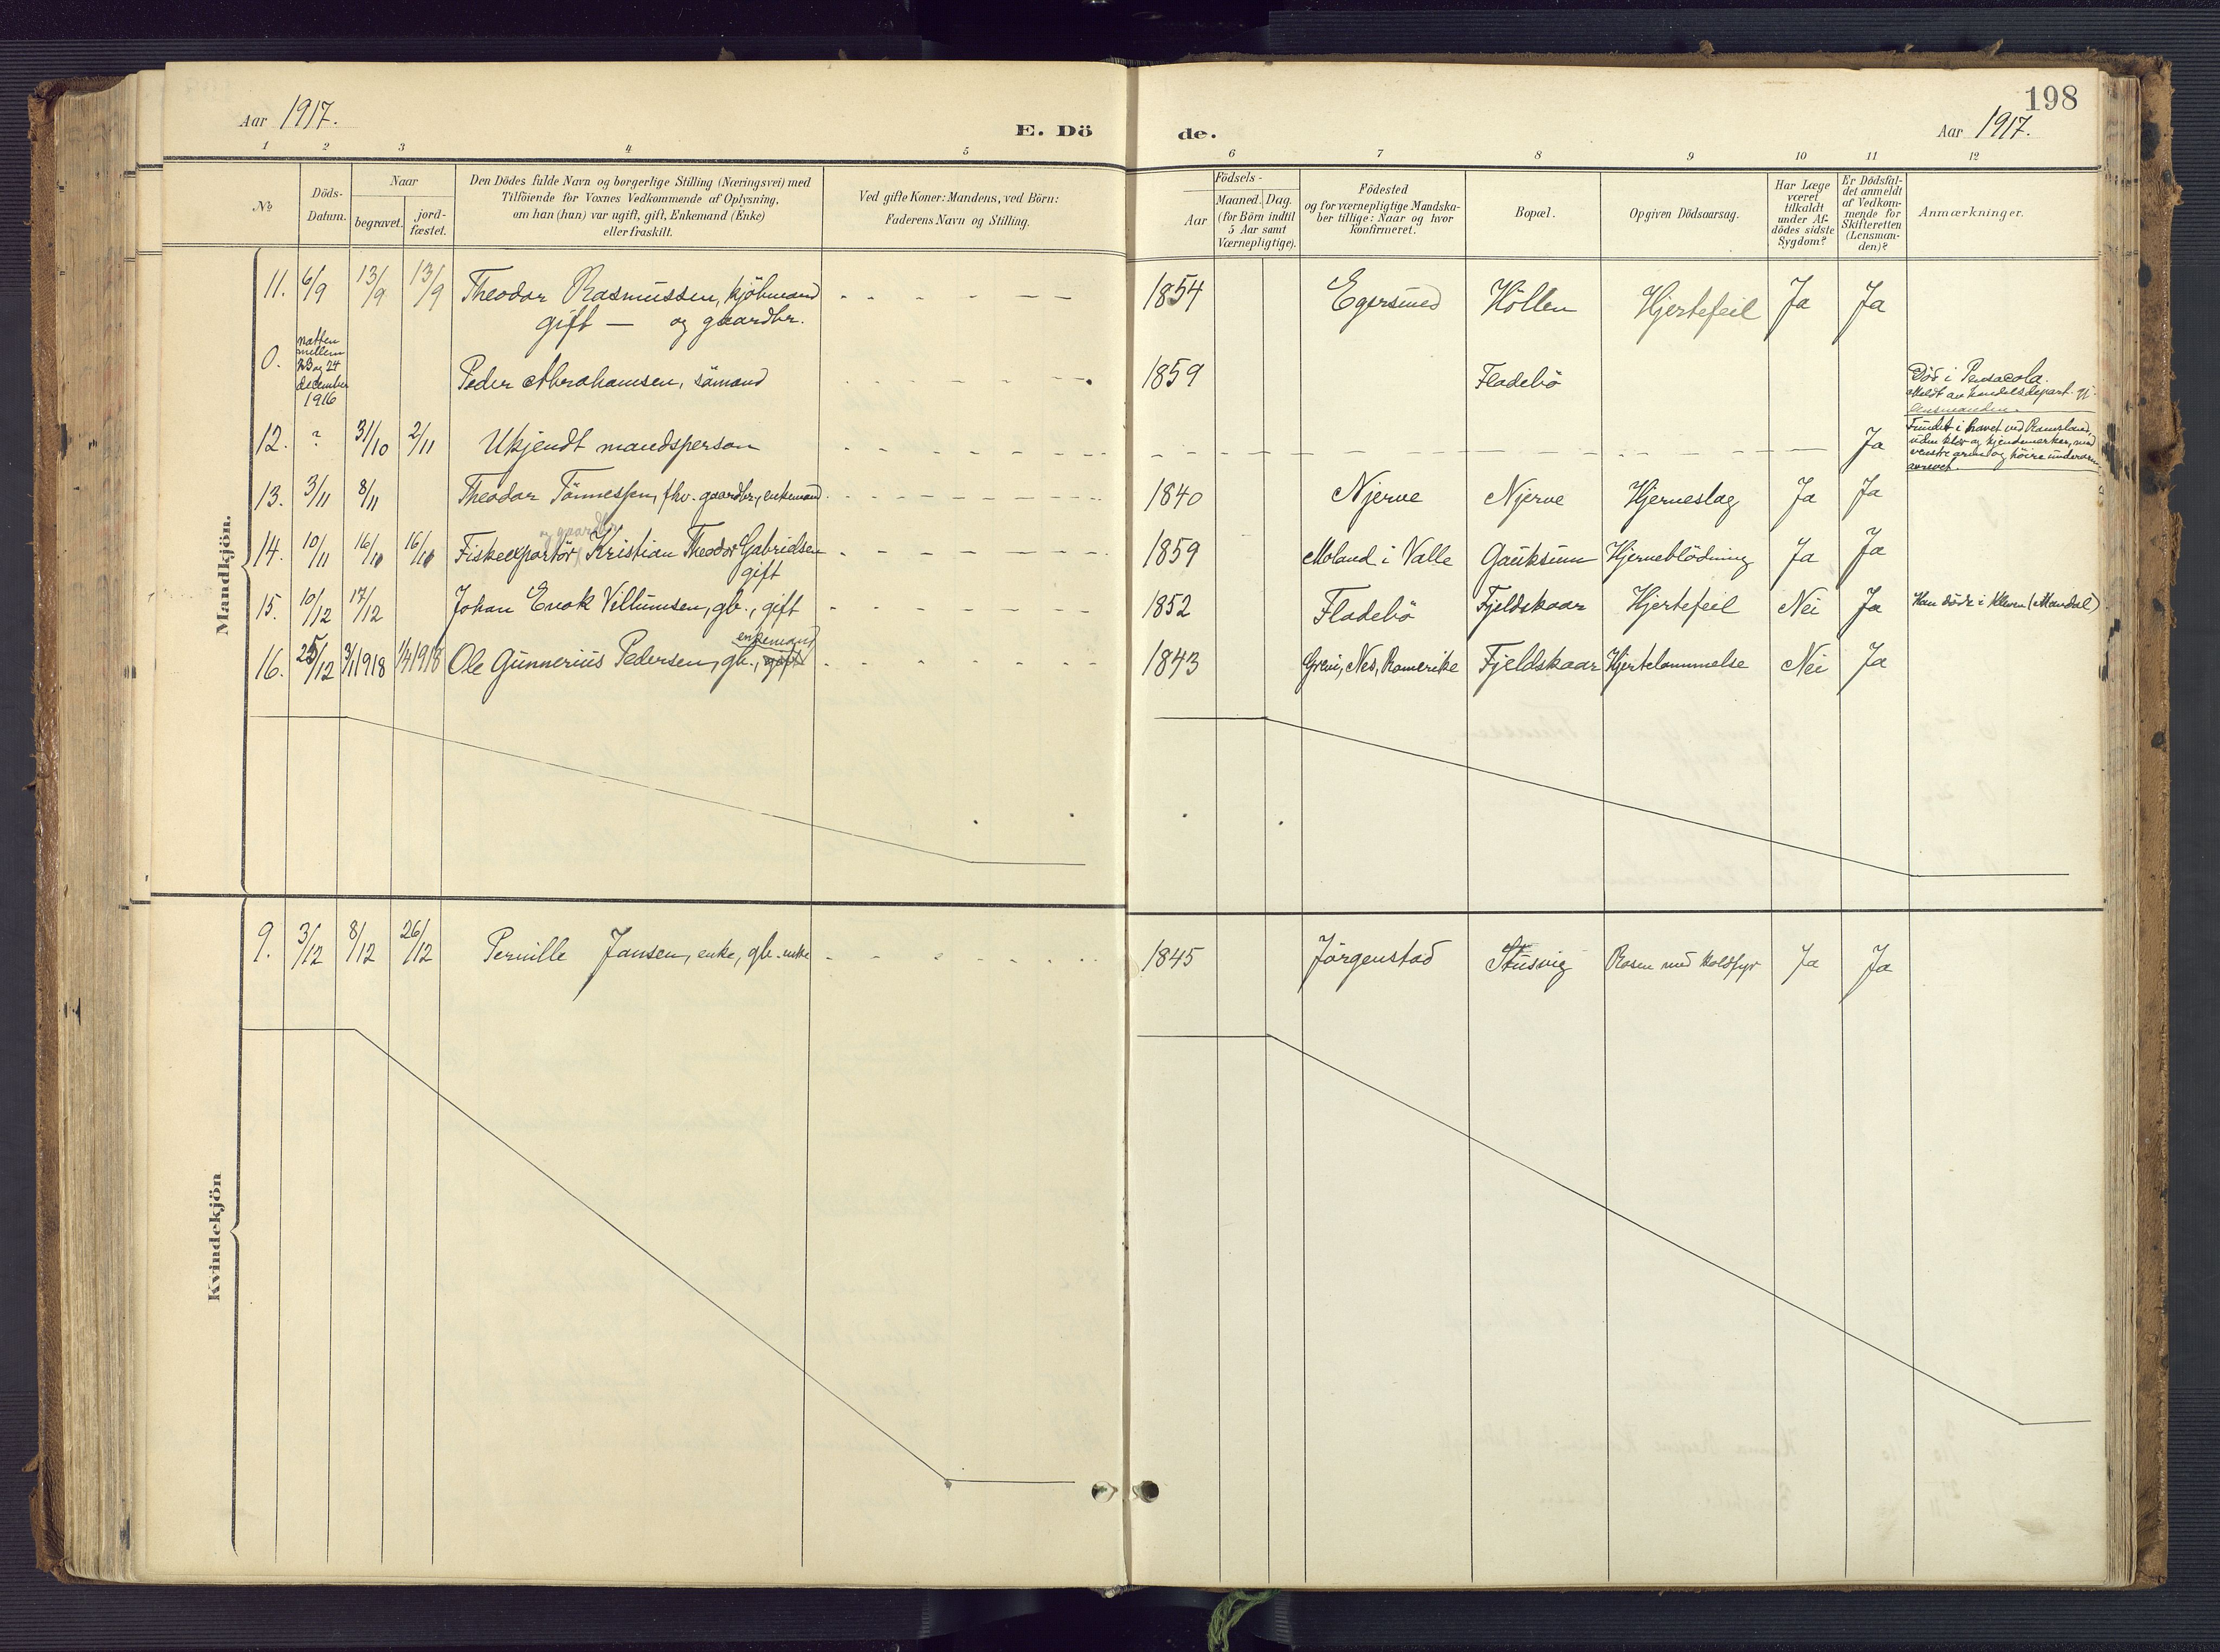 198
Aar 1917.
E. Dö
de.
Aar 1917.
1 2 3 4 5
6 7 8 9 10 11 12
№
Döds-
Datum.
Naar
begravet.
jord-
fæstet.
Den Dödes fulde Navn og borgerlige Stilling (Næringsvei) med
Tilföiende for Voxnes Vedkommende af Oplysning,
om han (hun) var ugift, gift, Enkemand (Enke)
eller fraskilt.
Ved gifte Koner: Mandens, ved Börn:
Faderens Navn og Stilling.
Födsels-
Aar
Maaned. Dag.
(for Börn indtil
5 Aar samt
Værnepligtige).
Födested
og for værnepligtige Mandska-
ber tillige: Naar og hvor
Konfirmeret.
Bopæl.
Opgiven Dödsaarsag.
Har Læge
været
tilkaldt
under Af-
dödes sidste
Sygdom?
Er Dödsfal-
det anmeldt
af Vedkom-
mende for
Skifteretten
(Lensman-
den)?
Anmærkninger.
Mandkjön.
11. 6/9 13/9 13/9 Theodor Rasmussen, kjöbmand
gift — og gaardbr.
1854 Egersund Höllen Hjertefeil Ja Ja
0. natten
mellem
23 og 24
december
1916
Peder Abrahamsen, sömand
1859 Fladebö
Död i Pensacola.
Meldt av handelsdepart.
lensmanden.
12. ? 31/10 2/11 Ukjendt mandsperson
Ja
Fundet i havet ved Ramsland,
uden klær og kjendemerker, med
venstre arm og höire underarm
avrevet.
13. 3/11 8/11 Theodor Tönnessen, fhv. gaardbr., enkemand
1840 Njerve Njerve Hjerneslag Ja Ja
og gaardbr
14. 10/11 16/11 16/11 Fiskeexportör, Kristian Theodor Gabrielsen
gift
1859 Moland i Valle Gauksum Hjerneblödning Ja Ja
15. 10/12 17/12 Johan Enok Villumsen, gb., gift
1852 Fladebö Fjeldskaar Hjertefeil Nei Ja Han döde i Kleven (Mandal)
enkemand
16. 25/12 3/1 1918 1/4 1918 Ole Gunnerius Pedersen, gb., gift
1843 Grein, Nes, Romerike Fjeldskaar Hjertelammelse Nei Ja
Kvindekjön
9. 3/12 8/12 26/12 Pernille Jansen, enke, gb. enke
1845 Jörgenstad Stusvig Rosen med koldfyr Ja Ja